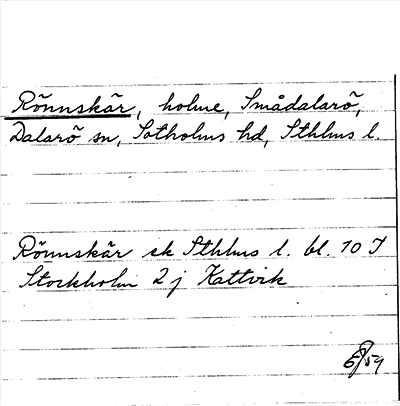 Rönnskär, holme, Smådalarö,
Dalarö sn, Sotholms hd, Sthlms l.
Rönnskär ek Sthlms l. bl. 10 J
Stockholm 2 j Kattvik
59